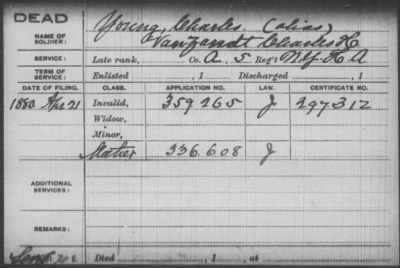 DEAD
NAME OF SOLDIER: Young, Charles (alias)
Vanzandt Charles H
SERVICE: Late rank, Co. A, 5 Reg't N.Y. H A
TERM OF SERVICE: Enlisted , 1 Discharged , 1
DATE OF FILING. CLASS. APPLICATION NO. LAW. CERTIFICATE NO.
1880 Apr 21 Invalid, 359265 J 297312
Widow,
Minor,
Mother 336.608 J
ADDITIONAL SERVICES:
REMARKS:
Died , 1 , at